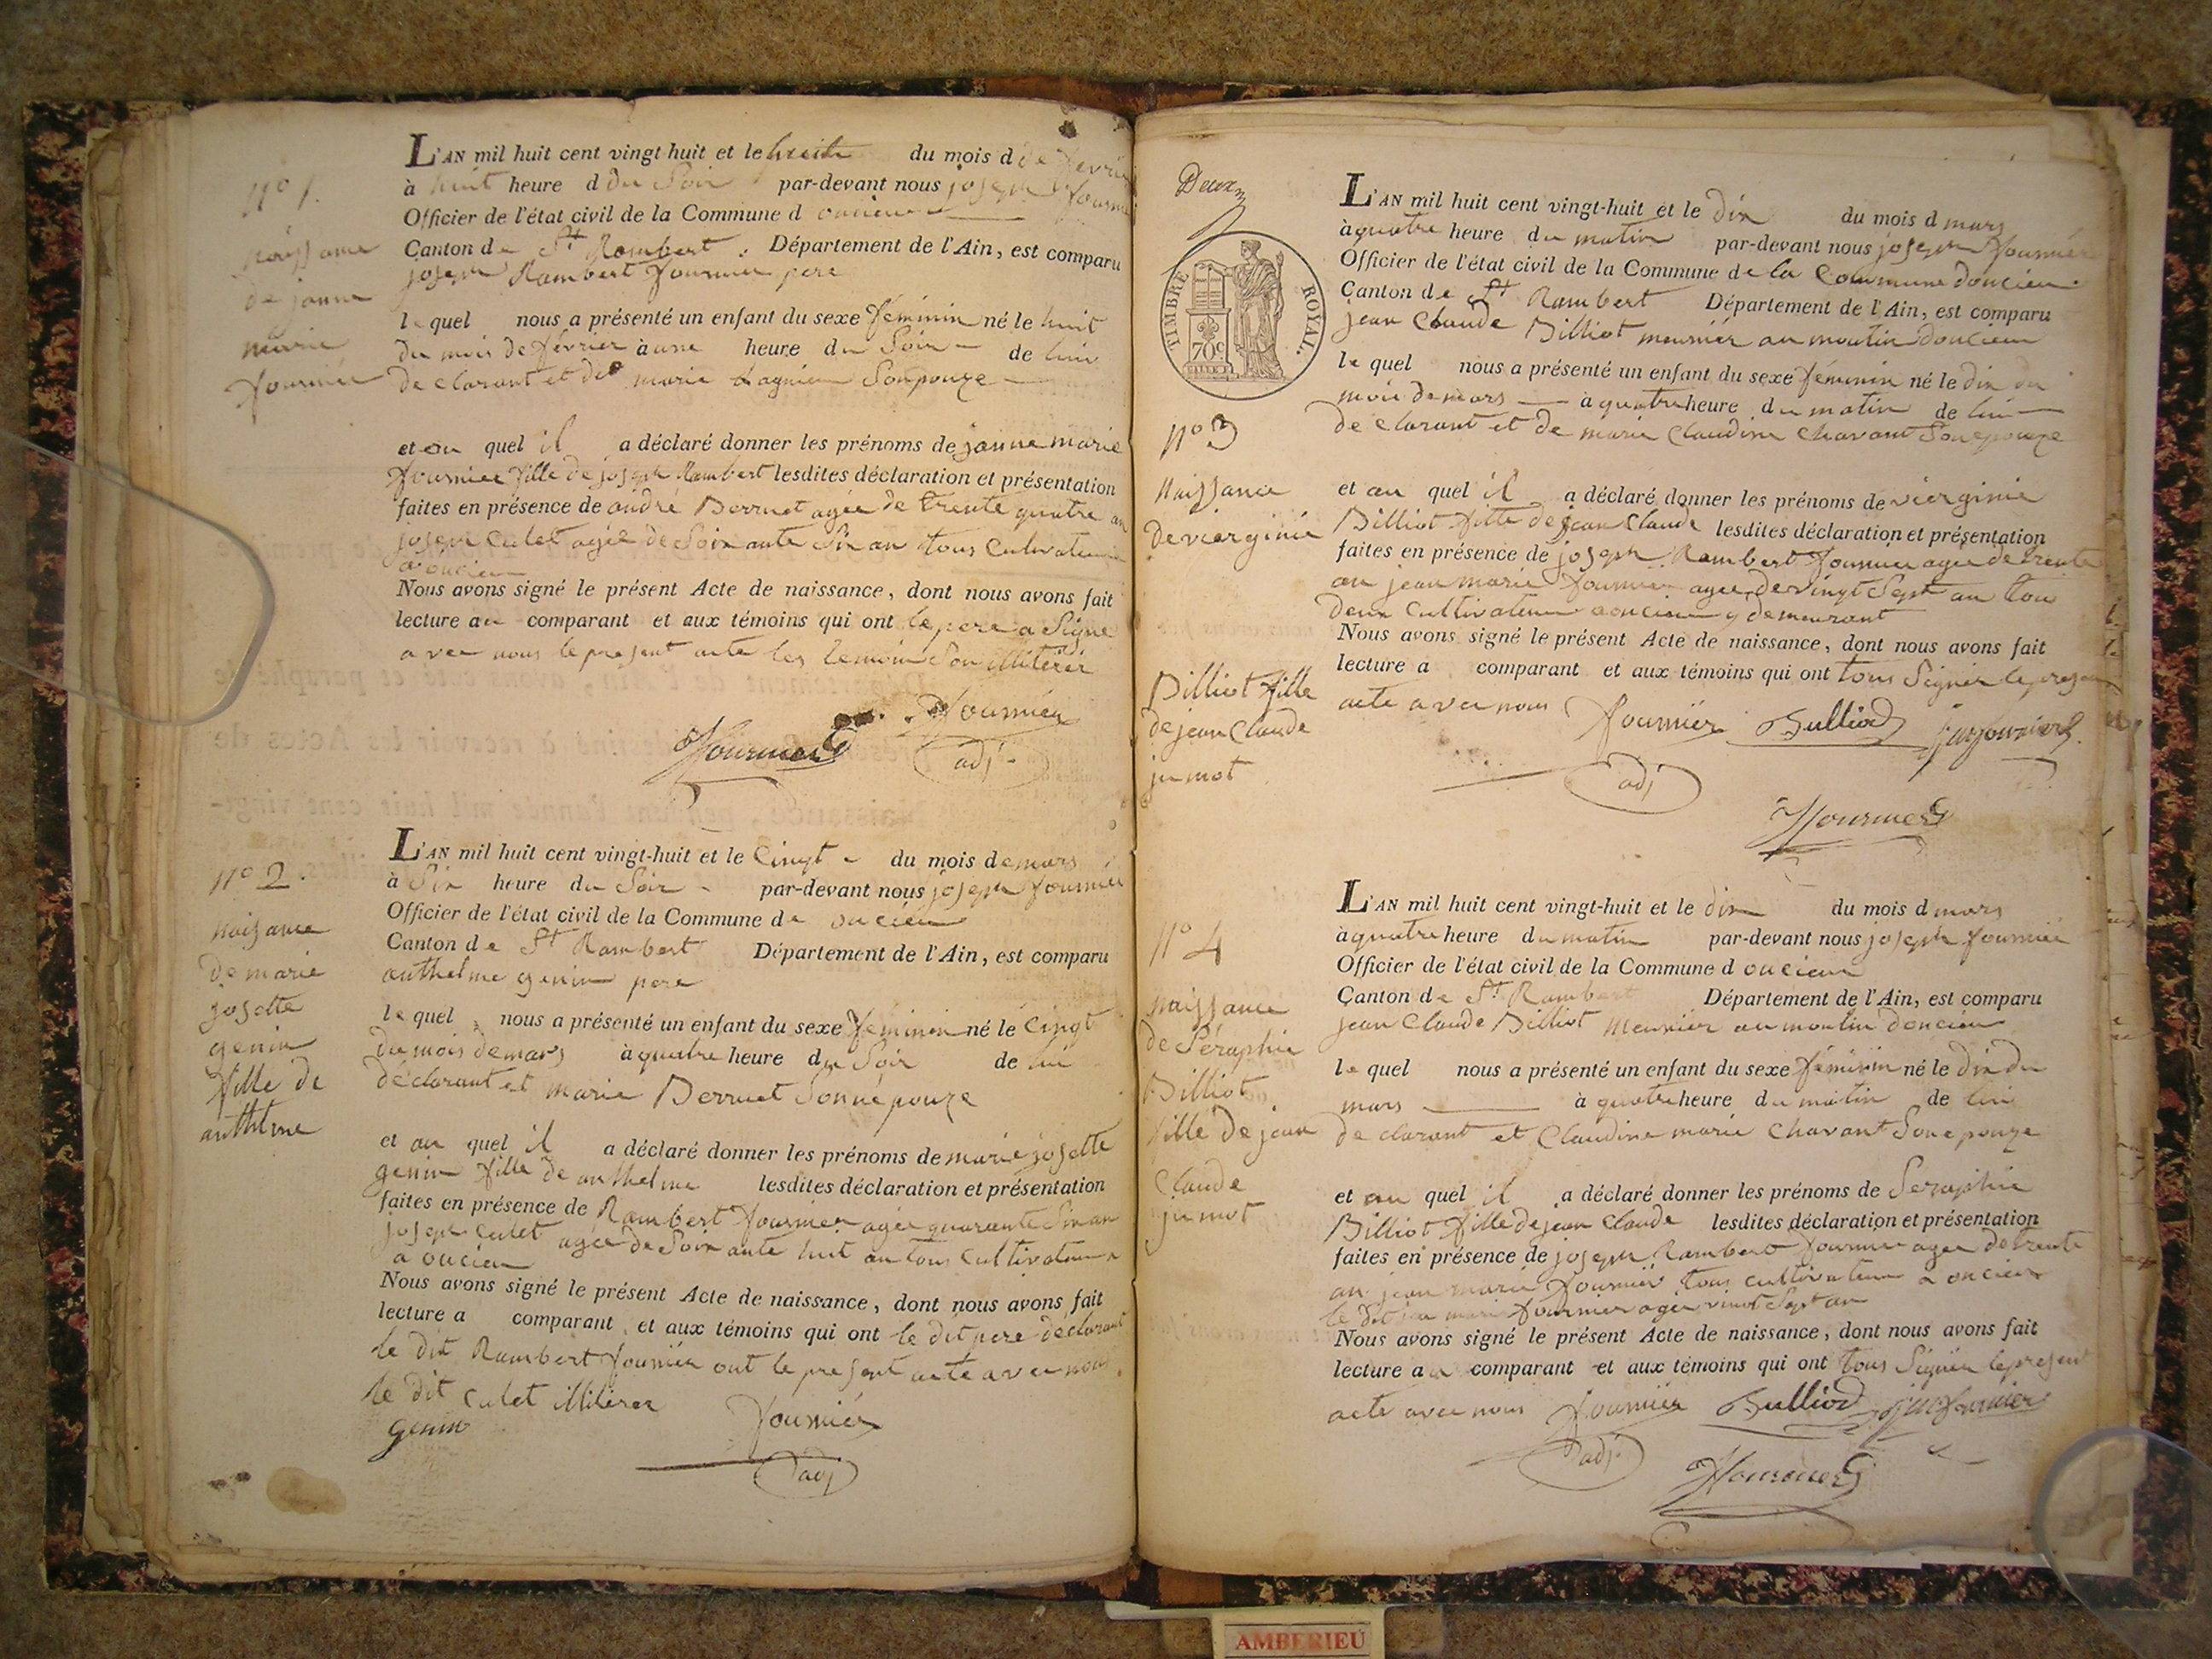 nº 1.
naissance
de janne
marie
fournier
L'AN mil huit cent vingt-huit et le huit du mois d de fevrier
à huit heure d du Soir par-devant nous joseph fournier
Officier de l'état civil de la Commune d oncieu
Canton de St Rambert. Département de l'Ain, est comparu
joseph Rambert fournier pere
le quel nous a présenté un enfant du sexe féminin né le huit
du mois de février à une heure du Soir de lui
declarant et de marie Lagnieu Son pouze
et au quel il a déclaré donner les prénoms de janne marie
fournier fille de joseph Rambert lesdites déclaration et présentation
faites en présence de andré Berruet agée de trente quatre an
joseph Culet agée de Soixante Six an tous Cultivateur
a oncieu
Nous avons signé le présent Acte de naissance, dont nous avons fait
lecture au comparant et aux témoins qui ont le pere a Signé
avec nous le present acte les temoin Son illitérér
fournier
adj
fournier
nº 2.
naisance
de marie
josette
genin
fille de
anthelme
L'AN mil huit cent vingt-huit et le Cinqt du mois de mars
à Six heure du Soir par-devant nous joseph fournier
Officier de l'état civil de la Commune de oncieu
Canton de St Rambert Département de l'Ain, est comparu
anthelme genin pere
le quel nous a présenté un enfant du sexe féminin né le Cinqt
du mois de mars à quatre heure du Soir de lui
déclarant et marie Berruet Son népouze
et au quel il a déclaré donner les prénoms de marie josette
genin fille de anthelme lesdites déclaration et présentation
faites en présence de Rambert fournier agée quarante Six an
joseph culet agée de Soixante huit an tous cultivateur
a oncieu
Nous avons signé le présent Acte de naissance, dont nous avons fait
lecture a comparant et aux témoins qui ont le dit pere déclarant
le dit Rambert fournier ont le present acte avec nous
le dit culet illiterer
genin
fournier
adj
Deux
TIMBRE ROYAL.
70c
nº 3
naissance
de vierginie
Billiot fille
de jean Claude
jumot
L'AN mil huit cent vingt-huit et le dix du mois d mars
à quatre heure du matin par-devant nous joseph fournier
Officier de l'état civil de la Commune de la Commune doncieu
Canton de St Rambert Département de l'Ain, est comparu
jean Claude Billiot meunier au moulin doncieu
le quel nous a présenté un enfant du sexe féminin né le dix du
mois de mars à quatre heure du matin de lui
declarant et de marie Claudine Chavant Son epouze
et au quel il a déclaré donner les prénoms de vierginie
Billiot fille de jean Claude lesdites déclaration et présentation
faites en présence de joseph Rambert fournier agée de trente
an jean marie fournier agée de vingt Sept an tou
deux cultivateur a oncieu y demeurant
Nous avons signé le présent Acte de naissance, dont nous avons fait
lecture a comparant et aux témoins qui ont tous Signér le present
acte avec nous
fournier Bulliod jm fournier
adj
fournier
nº 4
naissance
de Séraphie
Billiot
fille de jean
Claude
jumot
L'AN mil huit cent vingt-huit et le dix du mois d mars
à quatre heure du matin par-devant nous joseph fournier
Officier de l'état civil de la Commune d oncieu
Canton de St Rambert Département de l'Ain, est comparu
jean Claude Billiot meunier au moulin doncieu
le quel nous a présenté un enfant du sexe féminin né le dix du
mars à quatre heure du matin de lui
declarant et Claudine marie Chavant Son epouze
et au quel il a déclaré donner les prénoms de Seraphie
Billiot fille de jean Claude lesdites déclaration et présentation
faites en présence de joseph Rambert fournier agee de trente
an jean marie fournier tous cultivateur a oncieu
le dit jean marie fournier agée vingt Sept an
Nous avons signé le présent Acte de naissance, dont nous avons fait
lecture au comparant et aux témoins qui ont tous Signér le present
acte avec nous
fournier Bulliod jm fournier
adj
fournier
AMBERIEU